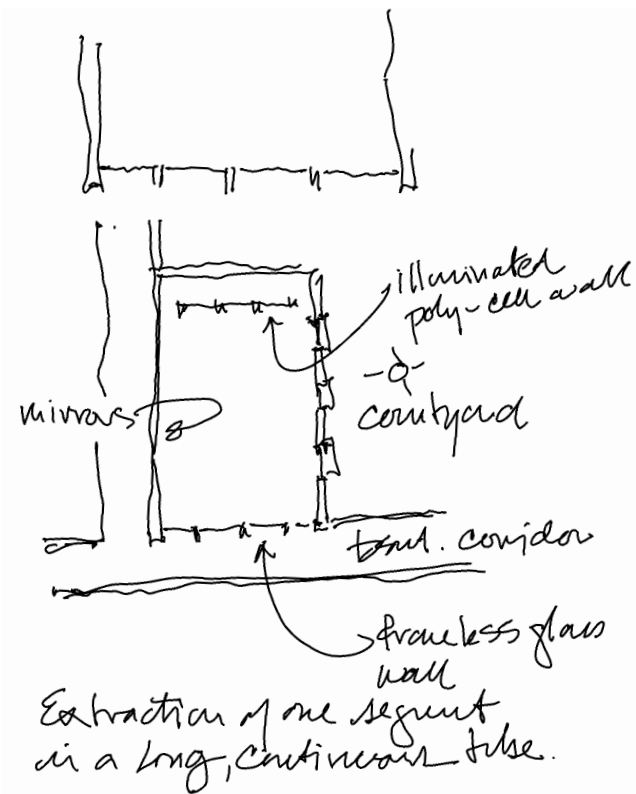 illuminated
poly-cell wall
mirrors
courtyard
corridor
frameless glass
wall
Extraction of one segment
in a long, continuous tube.